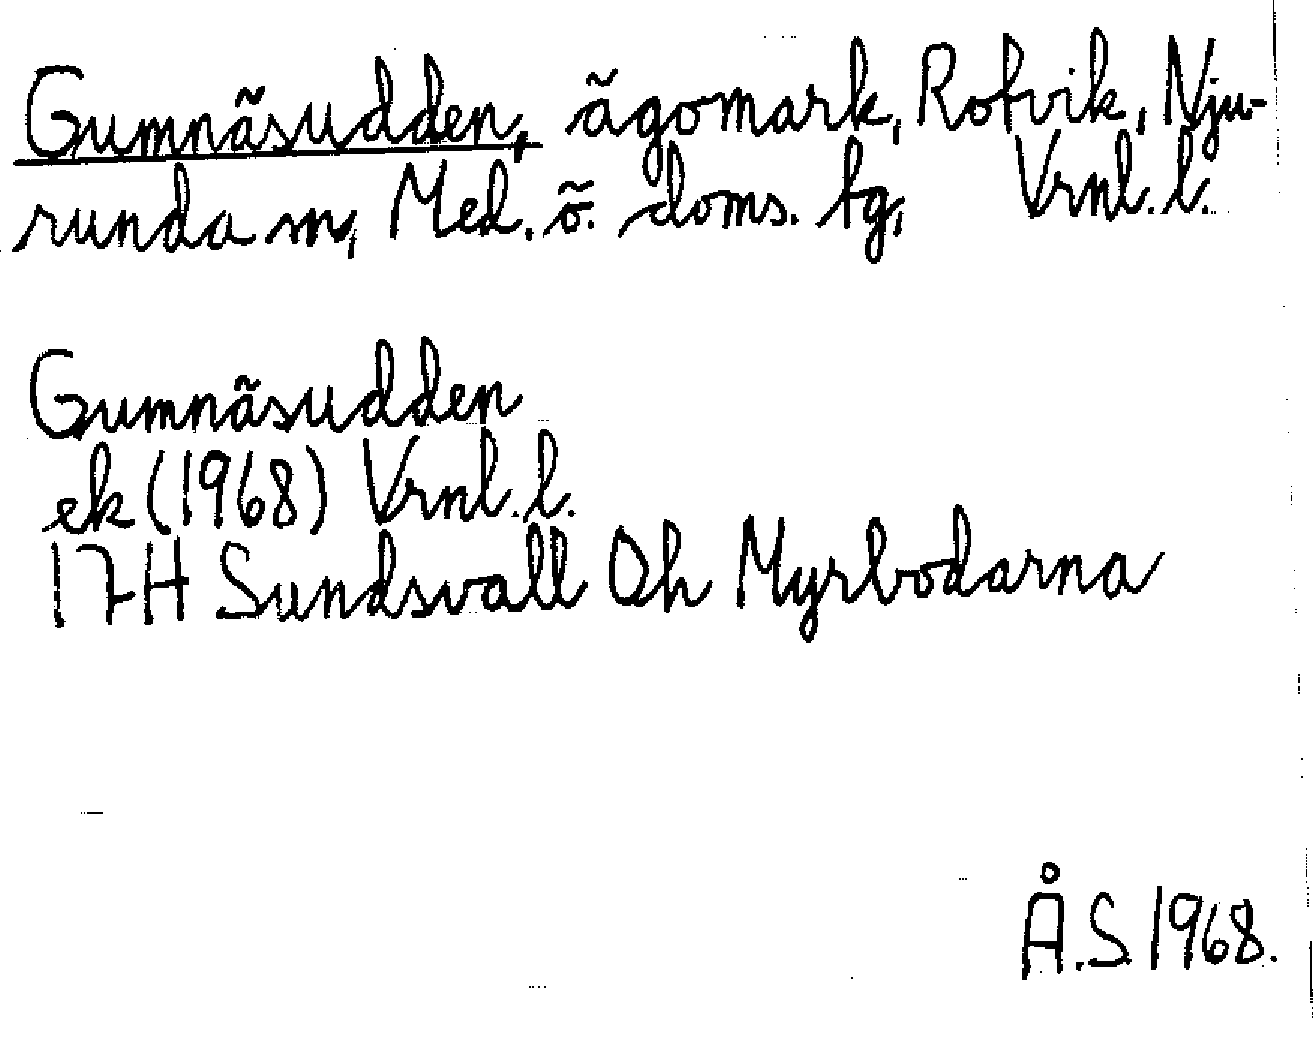 Gumnäsudden, ägomark, Rotvik, Nju-
runda sn, Med. ö. doms. tg, Vrnl. l.
Gumnäsudden
ek (1968) Vrnl. l.
17H Sundsvall 0h Myrbodarna
Å.S. 1968.